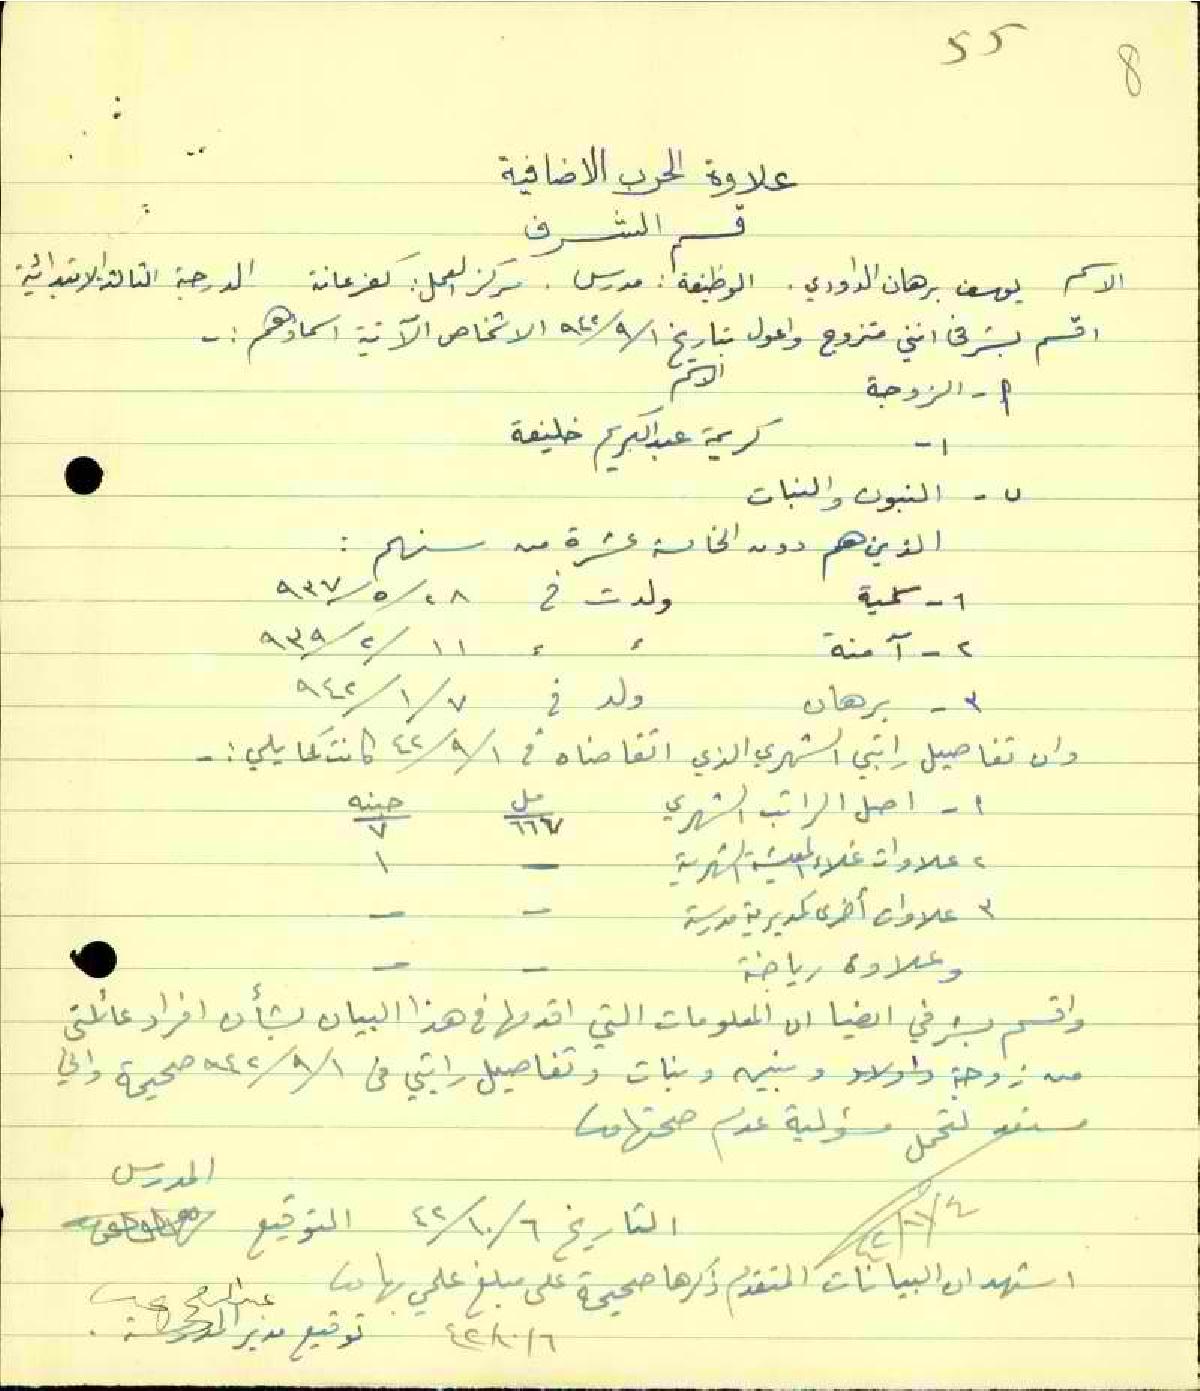 55
8
علاوة الحرب الاضافية
قسم الشرف
الاسم يوسف برهان الداودي. الوظيفة: مدرس. مركز العمل: كفرعانة الدرجة الثالثة الابتدائية
اقسم بشرفي انني متزوج واعول بتاريخ ٩٤٢/٩/١ الاشخاص الآتية اسماؤهم :-
أ - الزوجة الاسم
١- كريمة عبدالكريم خليفة
ب - البنون والبنات
الذين هم دون الخامسة عشرة من سنهم :
١- سمية ولدت في ٩٣٧/٥/٢٨
٢- آمنة ٩٣٩/٢/١١
٣- برهان ولد في ٩٤٢/١/٧
وان تفاصيل راتبي الشهري الذي اتقاضاه في ٤٢/٩/١ كانت كما يلي :-
١- اصل الراتب الشهري مل ٦٦٧ جنيه ٧
٢ علاوات غلاء المعيشة الشهرية - ١
٣ علاوات أخرى كمديرية مدرسة - -
وعلاوة رياضة - -
واقسم بشرفي ايضا ان المعلومات التي اقدمها في هذا البيان بشأن افراد عائلتي
من زوجة واولاد وبنين وبنات وتفاصيل راتبي في ٩٤٢/٩/١ صحيحة واني
مستعد لتحمل مسؤولية عدم صحتها
المدرس
التاريخ ٤٢/١٠/٦ التوقيع
اشهد ان البيانات المتقدم ذكرها صحيحة على مبلغ علمي بها
٤٢/١٠/٦ توقيع مدير المدرسة .